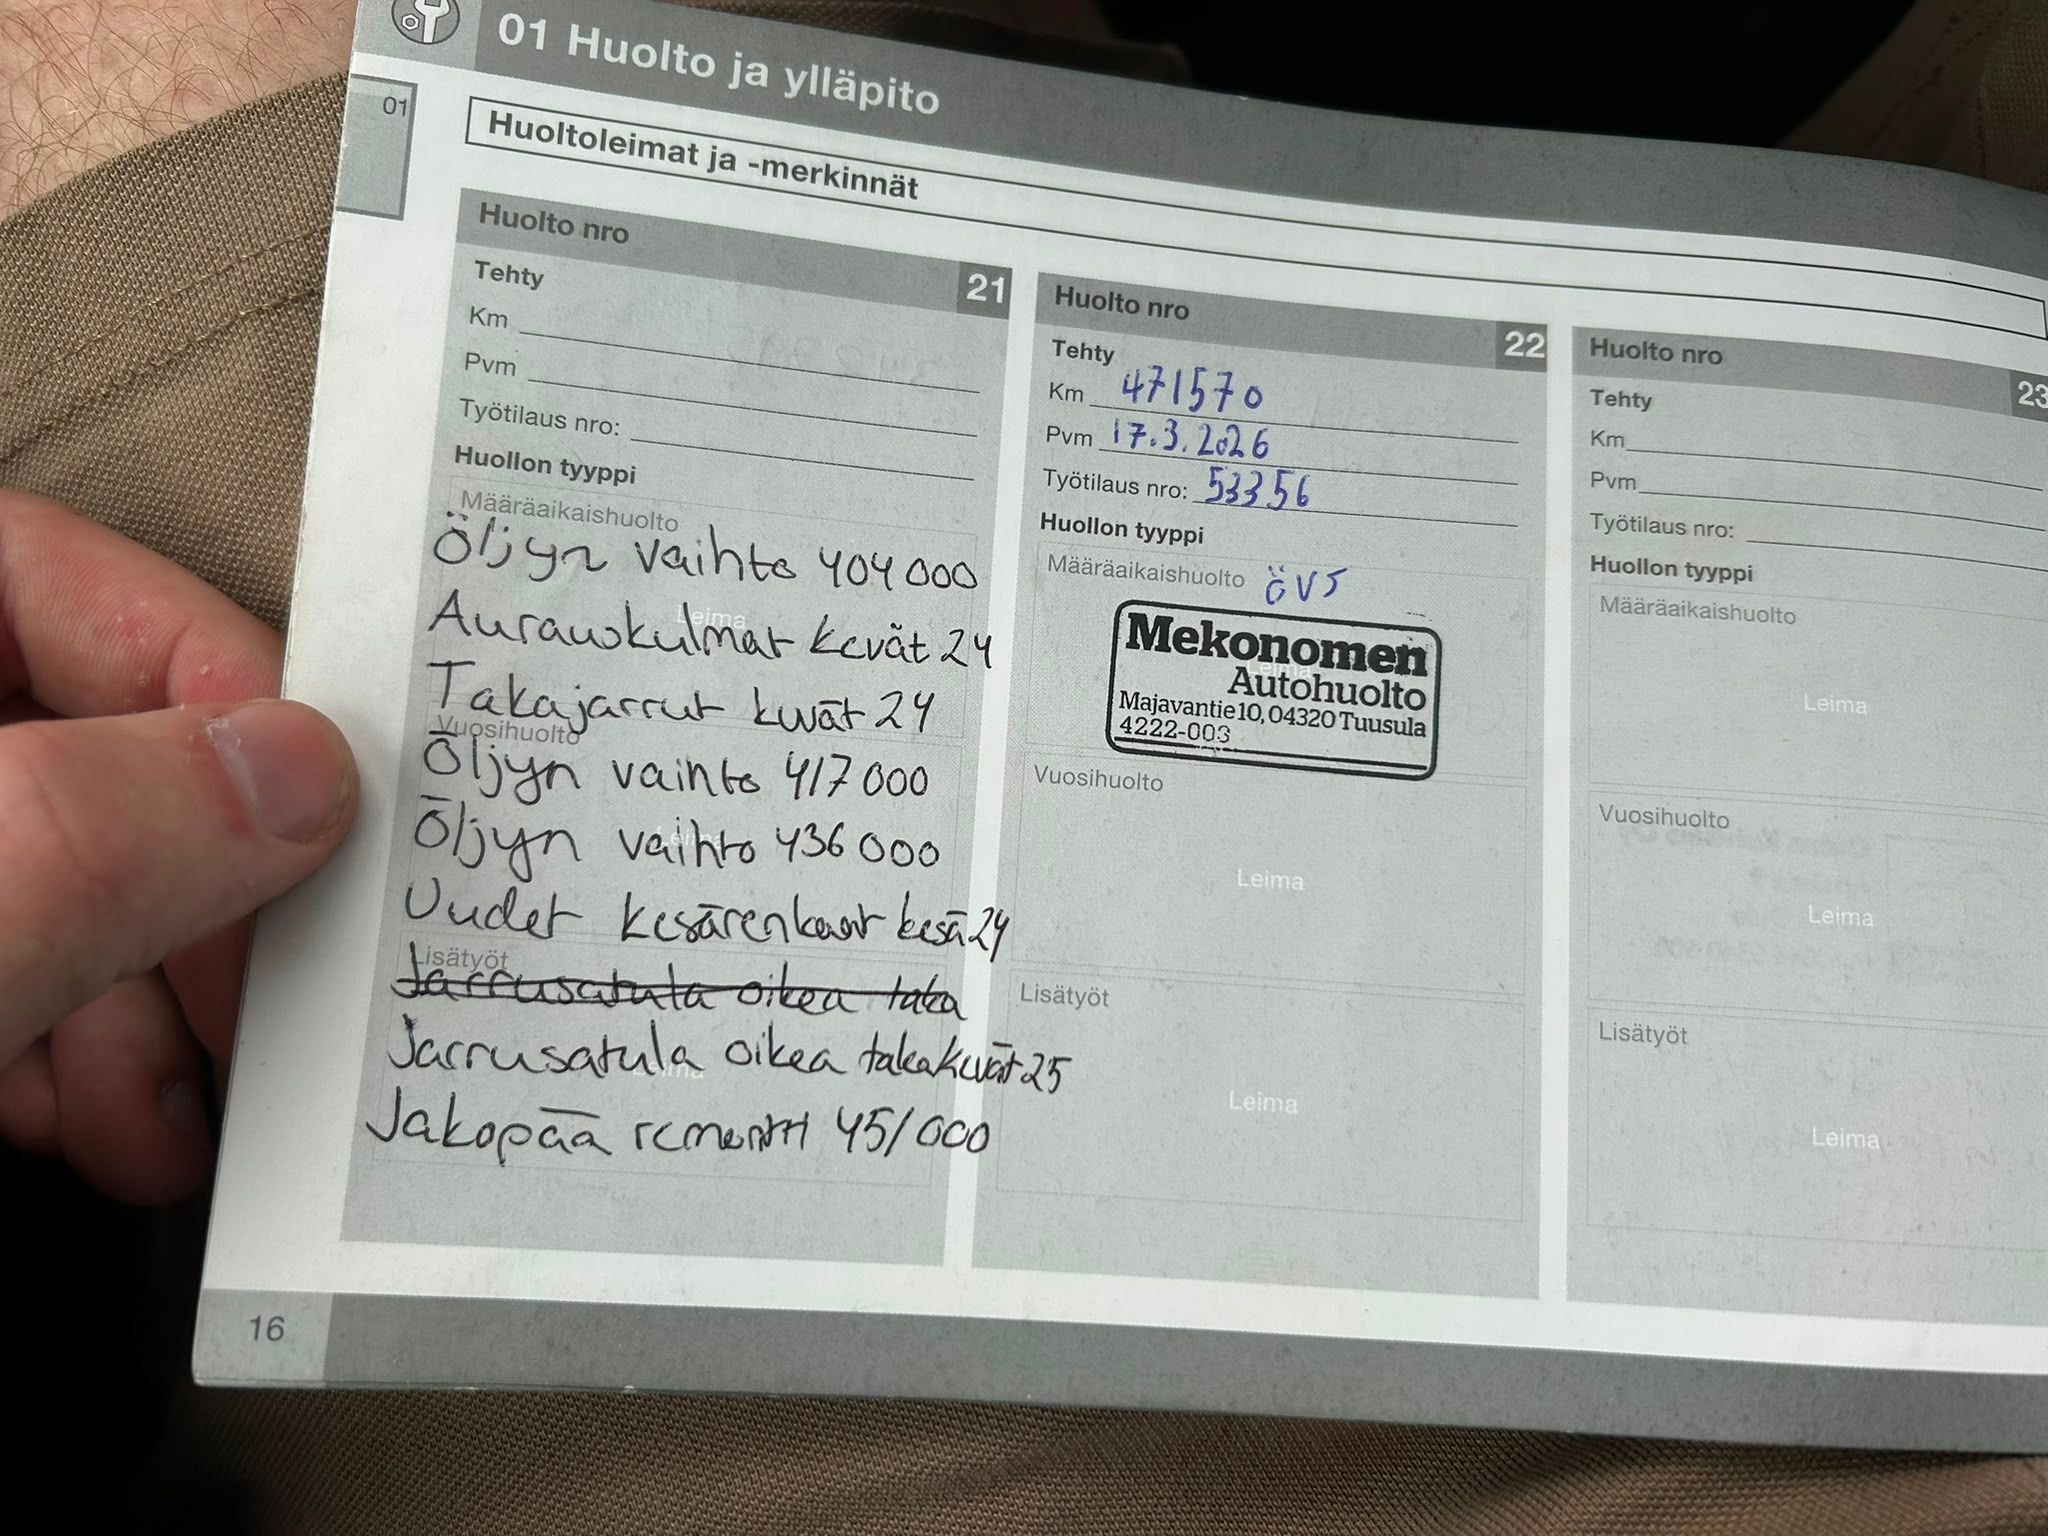 01 Huolto ja ylläpito
01
Huoltoleimat ja -merkinnät
Huolto nro
21
Tehty
Km
Pvm
Työtilaus nro:
Huollon tyyppi
Määräaikaishuolto
Öljyn vaihto 404 000
Leima
Aurauskulmat kevät 24
Takajarrut kevät 24
Vuosihuolto
Öljyn vaihto 417 000
Öljyn vaihto 436 000
Leima
Uudet kesärenkaat kesä 24
Lisätyöt
Jarrusatula oikea taka
Jarrusatula oikea taka kevät 25
Leima
Jakopää remontti 451 000
Huolto nro
22
Tehty
Km 471570
Pvm 17.3.2026
Työtilaus nro: 53356
Huollon tyyppi
Määräaikaishuolto ÖVS
Leima
Mekonomen
Autohuolto
Majavantie 10, 04320 Tuusula
4222-003
Vuosihuolto
Leima
Lisätyöt
Leima
Huolto nro
23
Tehty
Km
Pvm
Työtilaus nro:
Huollon tyyppi
Määräaikaishuolto
Leima
Vuosihuolto
Leima
Lisätyöt
Leima
16